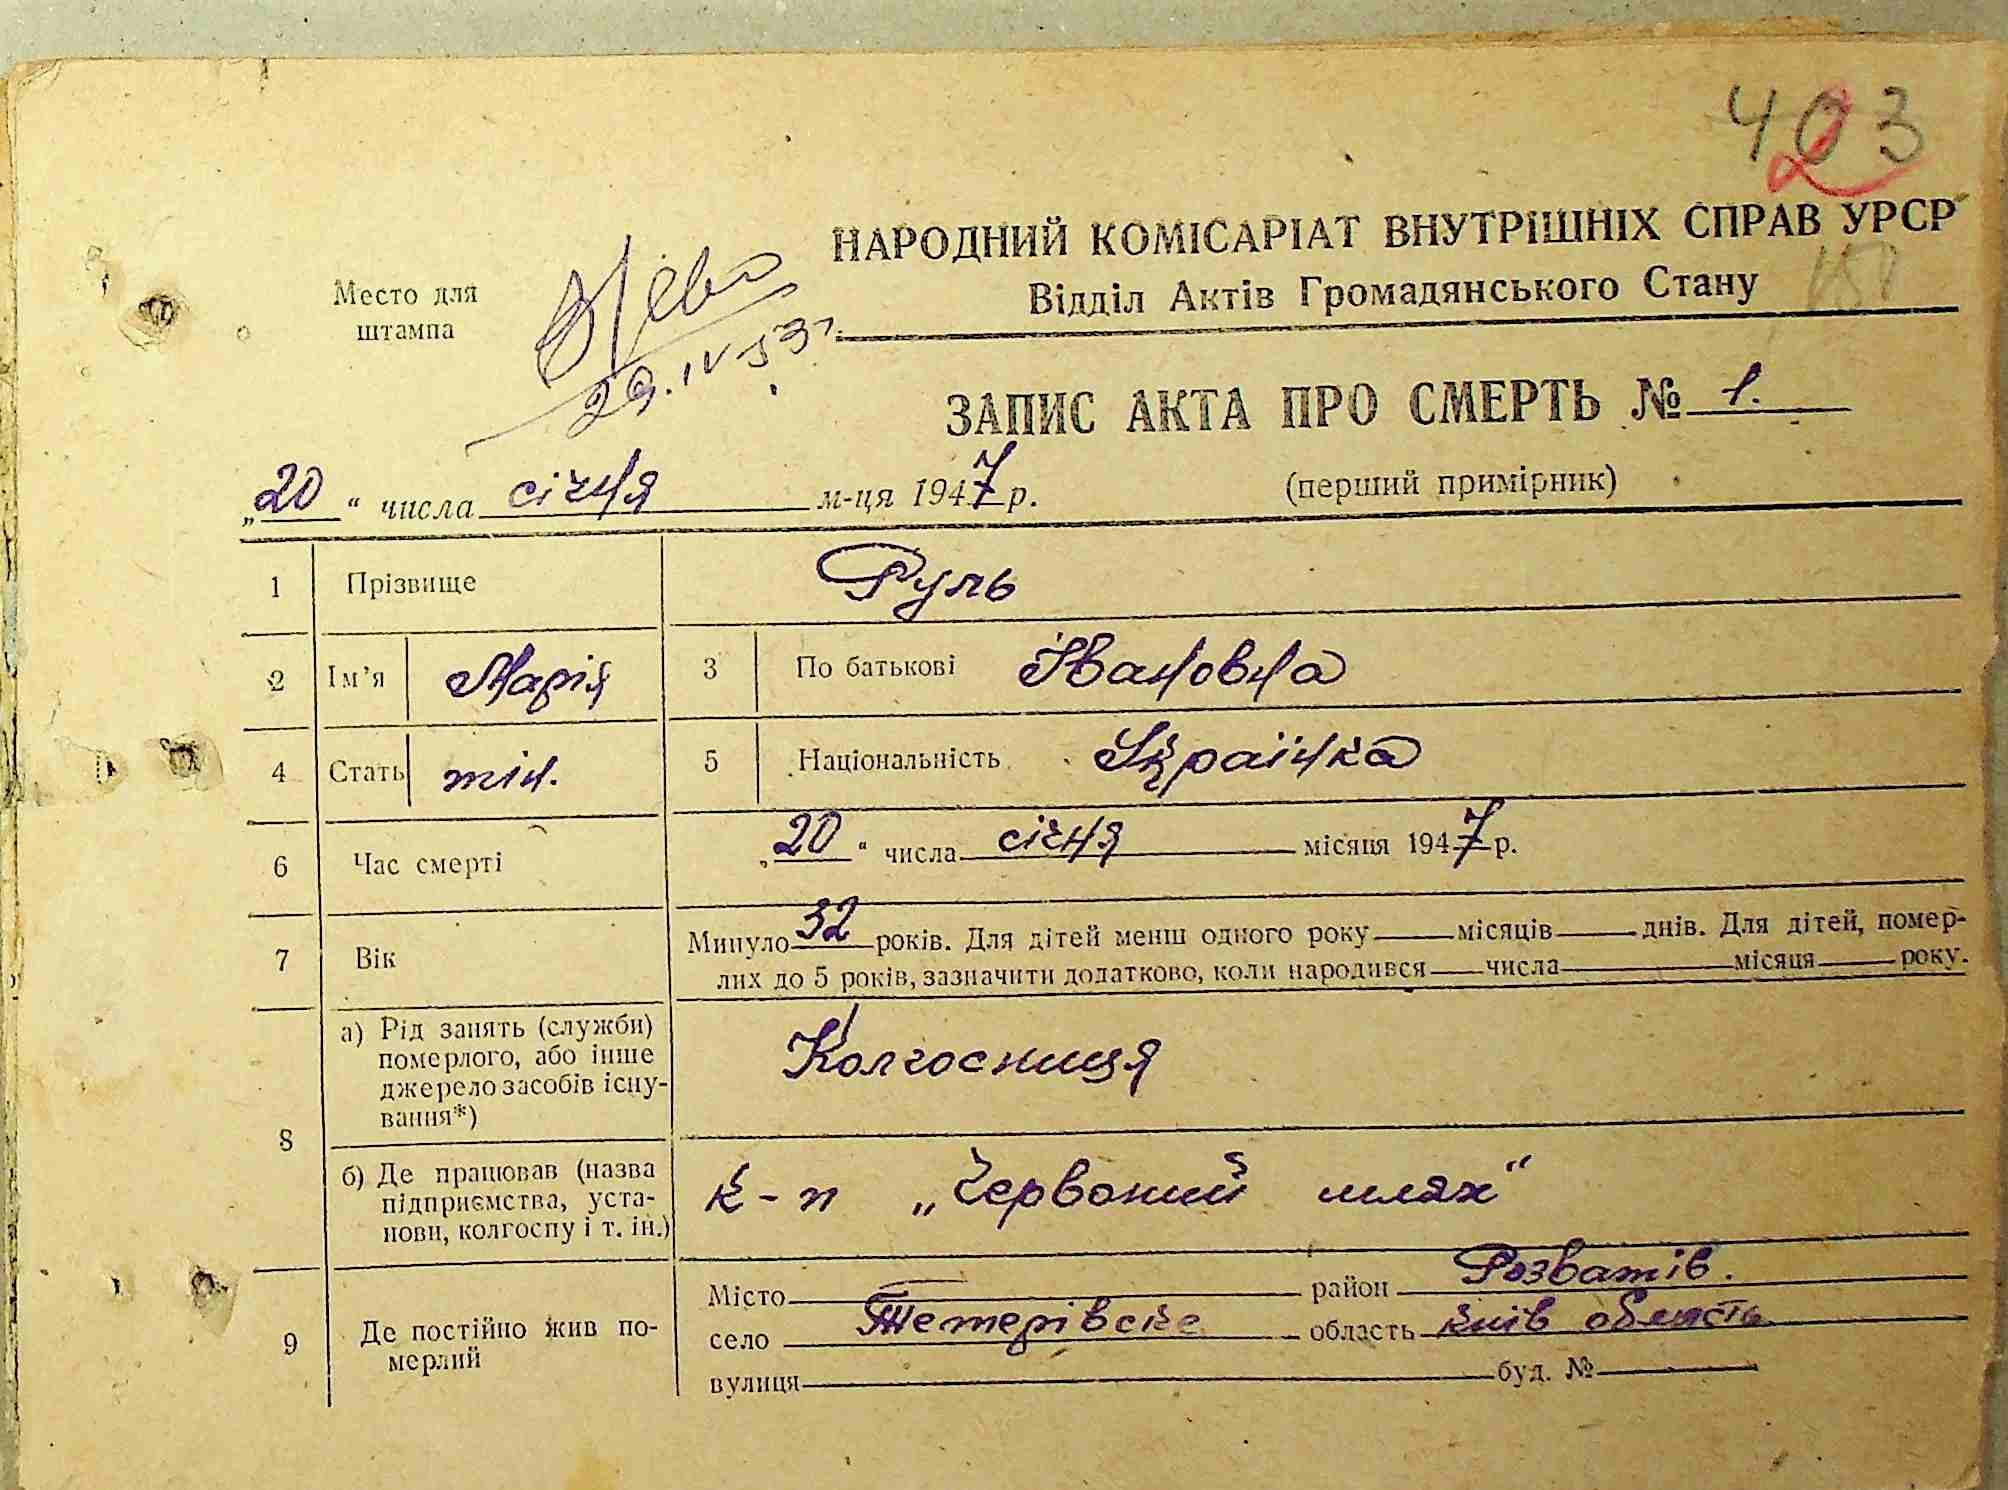 403
2
НАРОДНИЙ КОМІСАРІАТ ВНУТРІШНІХ СПРАВ УРСР
Место для штампа
Відділ Актів Громадянського Стану
29.IV 53г.
ЗАПИС АКТА ПРО СМЕРТЬ № 1.
„20“ числа січня м-ця 1947 р. (перший примірник)
1 Прізвище Руль
2 Ім’я Марія 3 По батькові Івановна
4 Стать жін. 5 Національність Українка
6 Час смерті „20“ числа січня місяця 1947 р.
7 Вік Минуло 32 років. Для дітей менш одного року місяців днів. Для дітей, помер-
лих до 5 років, зазначити додатково, коли народився числа місяця року.
8 а) Рід занять (служби)
померлого, або інше
джерело засобів існу-
вання*) Колгосниця
б) Де працював (назва
підприємства, уста-
нови, колгоспу і т. ін.) к-п „Червоний шлях“
9 Де постійно жив по-
мерлий
Місто район Розватів.
село Тетерівске область Київ область
вулиця буд. №